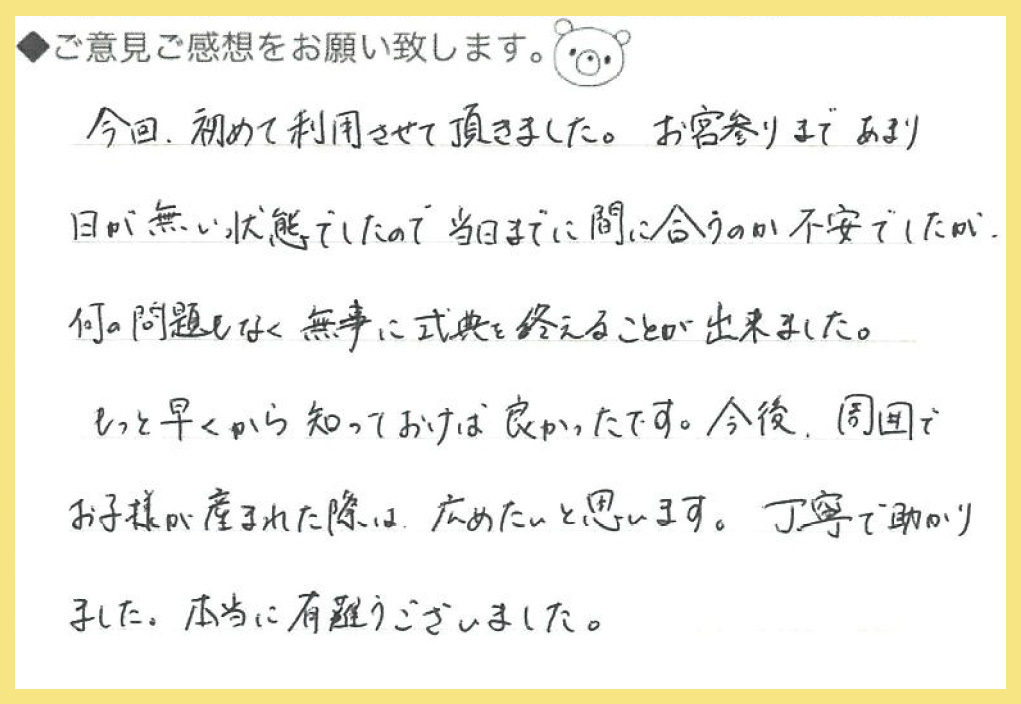 ◆ご意見ご感想をお願い致します。
今回、初めて利用させて頂きました。お宮参りまであまり
日が無い状態でしたので当日までに間に合うのか不安でしたが、
何の問題もなく無事に式典を終えることが出来ました。
もっと早くから知っておけば良かったです。今後、周囲で
お子様が産まれた際は、広めたいと思います。丁寧で助かり
ました。本当に有難うございました。